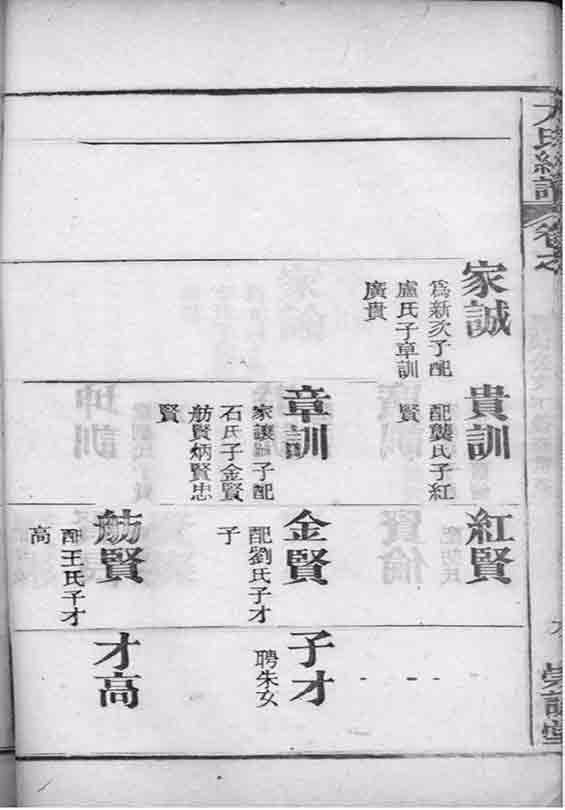 家誠
為新次子配
盧氏子章訓
廣貴
貴訓
配龔氏子紅
賢
紅賢
章訓
家讓子配
石氏子金賢
舫賢炳賢忠
賢
金賢
配劉氏子才
子
子才
聘朱女
舫賢
配王氏子才
高
才高